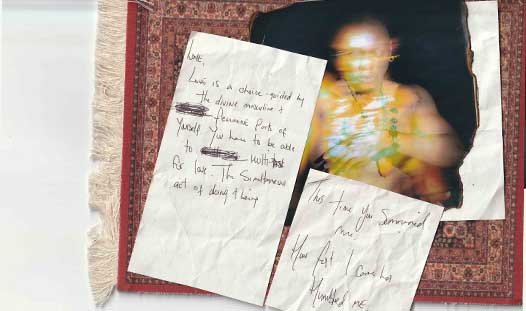 Love,
Love is a choice guided by
the divine masculine &
feminine parts of
yourself you have to be able
to
for love. The Simultaneous
act of doing & being
This time you Summoned
me.
How fast I came has
Humbled me.